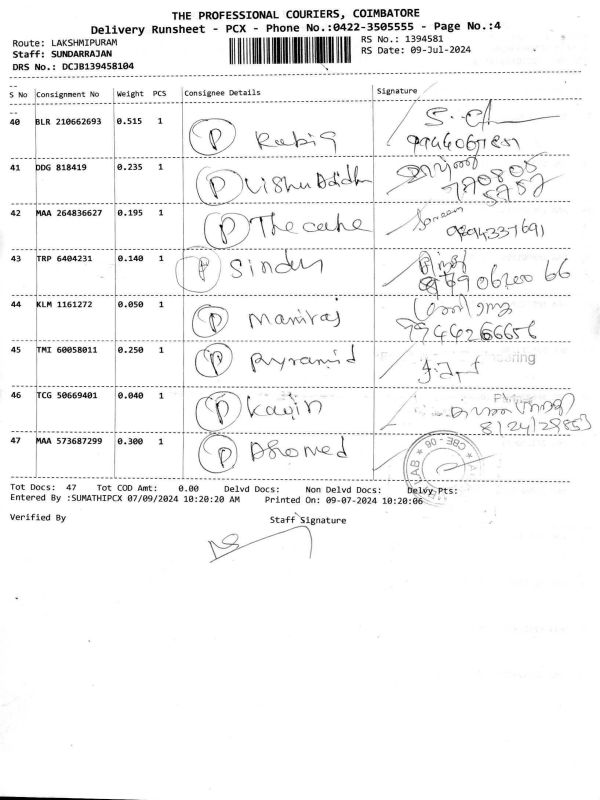 THE PROFESSIONAL COURIERS, COIMBATORE
Delivery Runsheet - PCX - Phone No.:0422-3505555 - Page No.:4
Route: LAKSHMIPURAM
RS No.: 1394581
Staff: SUNDARRAJAN
RS Date: 09-Jul-2024
DRS No.: DCJB139458104
S No Consignment No Weight PCS Consignee Details Signature
40 BLR 210662693 0.515 1 P
41 DDG 818419 0.235 1 P
42 MAA 264836627 0.195 1 P The cake
9894337691
43 TRP 6404231 0.140 1 P
44 KLM 1161272 0.050 1 P Maniraj
45 TMI 60058011 0.250 1 P Pyramid
46 TCG 50669401 0.040 1 P Kavin
47 MAA 573687299 0.300 1 P
Tot Docs: 47 Tot COD Amt: 0.00 Delvd Docs: Non Delvd Docs: Delvy Pts:
Entered By :SUMATHIPCX 07/09/2024 10:20:20 AM Printed On: 09-07-2024 10:20:06
Verified By Staff Signature